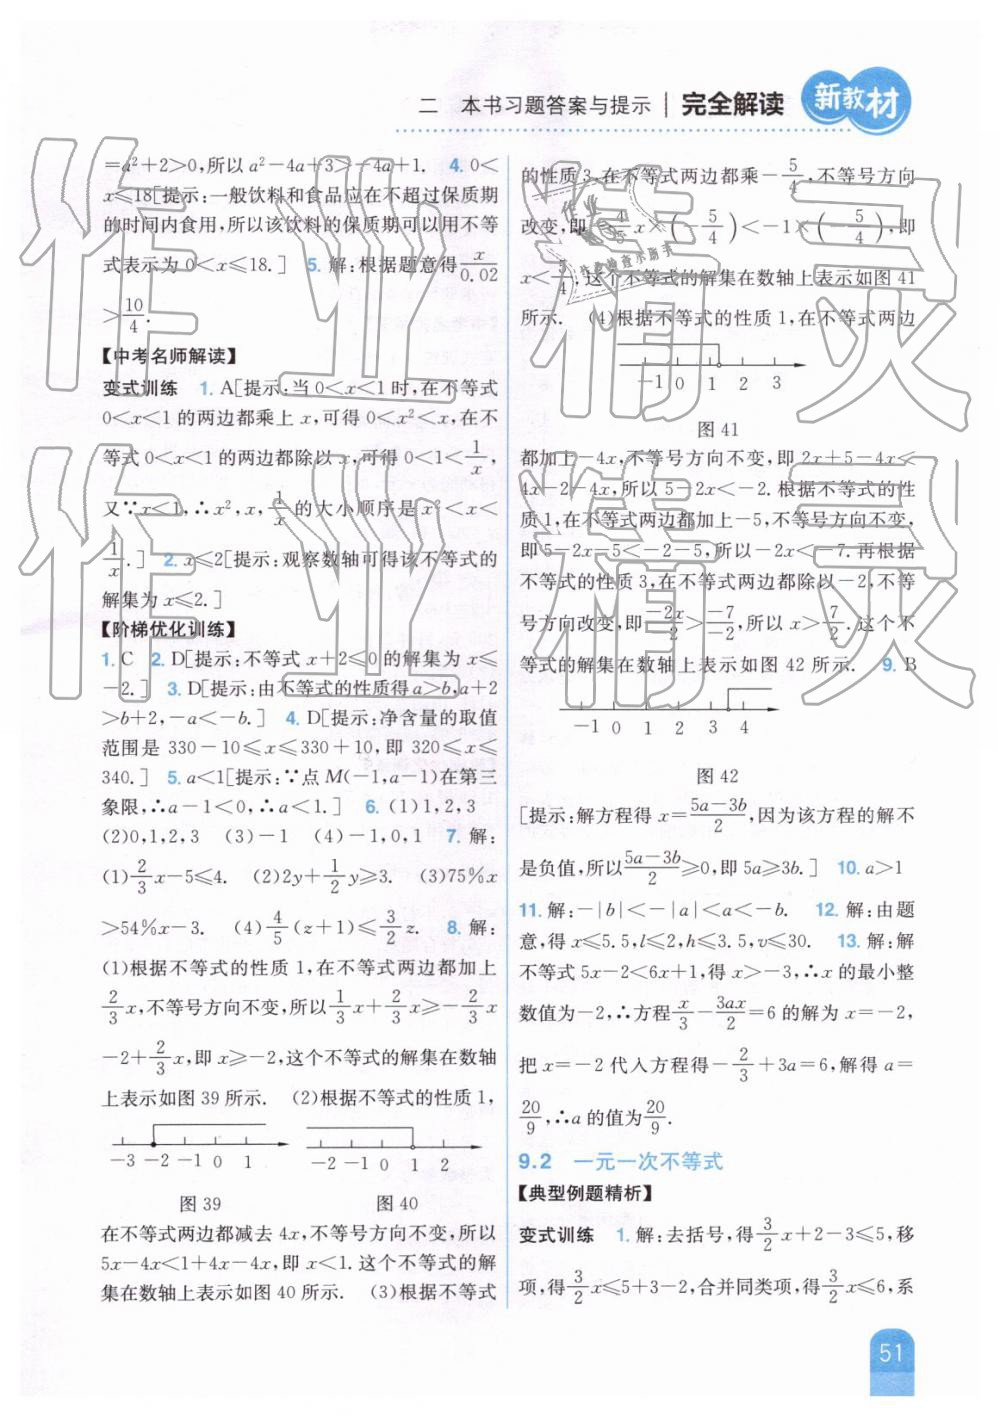 二 本书习题答案与提示 | 完全解读 新教材
=a²+2>0,所以 a²-4a+3>-4a+1. 4. 0<
x≤18[提示:一般饮料和食品应在不超过保质期
的时间内食用,所以该饮料的保质期可以用不等
式表示为 0<x≤18.] 5. 解:根据题意得 x/0.02
>10/4.
【中考名师解读】
变式训练 1. A[提示:当 0<x<1 时,在不等式
0<x<1 的两边都乘上 x,可得 0<x²<x,在不
等式 0<x<1 的两边都除以 x,可得 0<1<1/x,
又∵x<1,∴x²,x,1/x的大小顺序是 x²<x<
1/x.] 2. x≤2[提示:观察数轴可得该不等式的
解集为 x≤2.]
【阶梯优化训练】
1. C 2. D[提示:不等式 x+2≤0 的解集为 x≤
-2.] 3. D[提示:由不等式的性质得 a>b,a+2
>b+2,-a<-b.] 4. D[提示:净含量的取值
范围是 330-10≤x≤330+10,即 320≤x≤
340.] 5. a<1[提示:∵点 M(-1,a-1)在第三
象限,∴a-1<0,∴a<1.] 6. (1)1,2,3
(2)0,1,2,3 (3)-1 (4)-1,0,1 7. 解:
(1)2/3x-5≤4. (2)2y+1/2y≥3. (3)75%x
>54%x-3. (4)4/5(z+1)≤3/2z. 8. 解:
(1)根据不等式的性质 1,在不等式两边都加上
2/3x,不等号方向不变,所以1/3x+2/3x≥-2/3x
-2+2/3x,即 x≥-2,这个不等式的解集在数轴
上表示如图 39 所示. (2)根据不等式的性质 1,
-3 -2 -1 0 1
图 39
-2 -1 0 1 2
图 40
在不等式两边都减去 4x,不等号方向不变,所以
5x-4x<1+4x-4x,即 x<1.这个不等式的解
集在数轴上表示如图 40 所示. (3)根据不等式
的性质 3,在不等式两边都乘-5/4,不等号方向
改变,即-4/5x×(-5/4)<-1×(-5/4),即
x<5/4,这个不等式的解集在数轴上表示如图 41
所示. (4)根据不等式的性质 1,在不等式两边
-1 0 1 2 3
图 41
都加上-4x,不等号方向不变,即 2x+5-4x<
4x-2-4x,所以 5-2x<-2.根据不等式的性
质 1,在不等式两边都加上-5,不等号方向不变,
即 5-2x-5<-2-5,所以-2x<-7.再根据
不等式的性质 3,在不等式两边都除以-2,不等
号方向改变,即-2x/-2>-7/-2,所以 x>7/2.这个不
等式的解集在数轴上表示如图 42 所示. 9. B
-1 0 1 2 3 4
图 42
[提示:解方程得 x=5a-3b/2,因为该方程的解不
是负值,所以5a-3b/2≥0,即 5a≥3b.] 10. a>1
11. 解:-|b|<-|a|<a<-b. 12. 解:由题
意,得 x≤5.5,l≤2,h≤3.5,v≤30. 13. 解:解
不等式 5x-2<6x+1,得 x>-3,∴x 的最小整
数值为-2,∴方程x/3-3ax/2=6 的解为 x=-2,
把 x=-2 代入方程得-2/3+3a=6,解得 a=
20/9,∴a 的值为20/9.
9.2 一元一次不等式
【典型例题精析】
变式训练 1. 解:去括号,得3/2x+2-3≤5,移
项,得3/2x≤5+3-2,合并同类项,得3/2x≤6,系
51
作业精灵
作业精灵